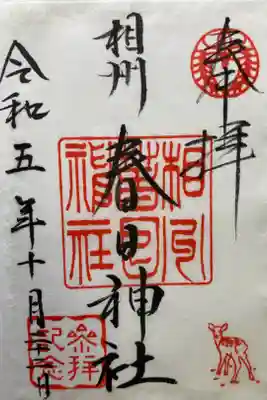 奉拝
相州
春日神社
相州春日神社
令和五年十月二十二日
参拝記念